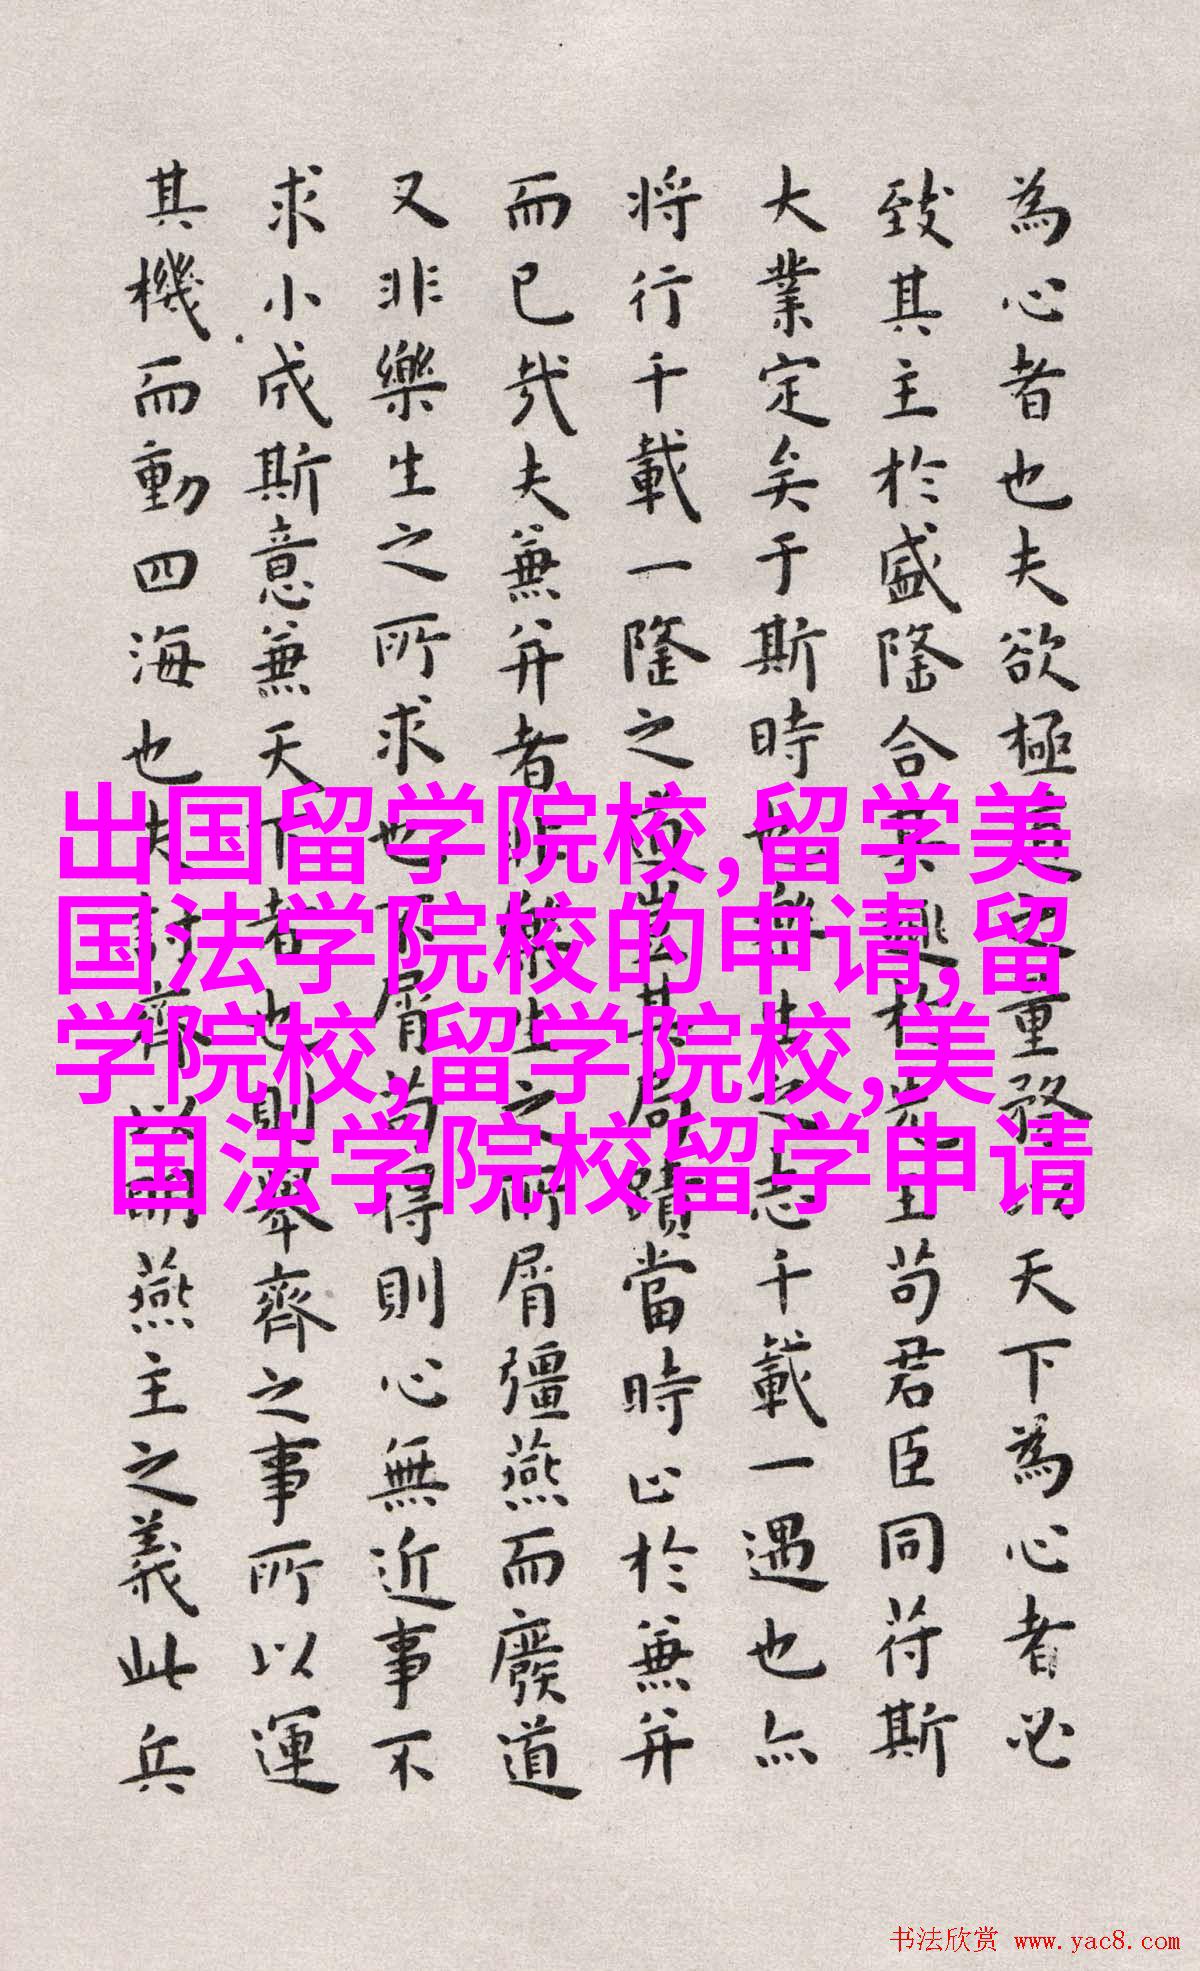 為心者也夫欲極天下為心者必
致其主於盛隆合苟君臣同苻斯
大業定矣于斯時千載一遇也亦
将行千載一隆之當時止於兼并
而已哉夫兼并者屑彊燕而廢道
又非樂生之所求也不屑苟得則心無近事不
求小成斯意兼天下者也則舉齊之事所以運
其機而動四海也夫討齊以明燕主之義此兵
出国留学院校,留学美
国法学院校的申请,留
学院校,留学院校,美
国法学院校留学申请
书法欣赏 www.yac8.com